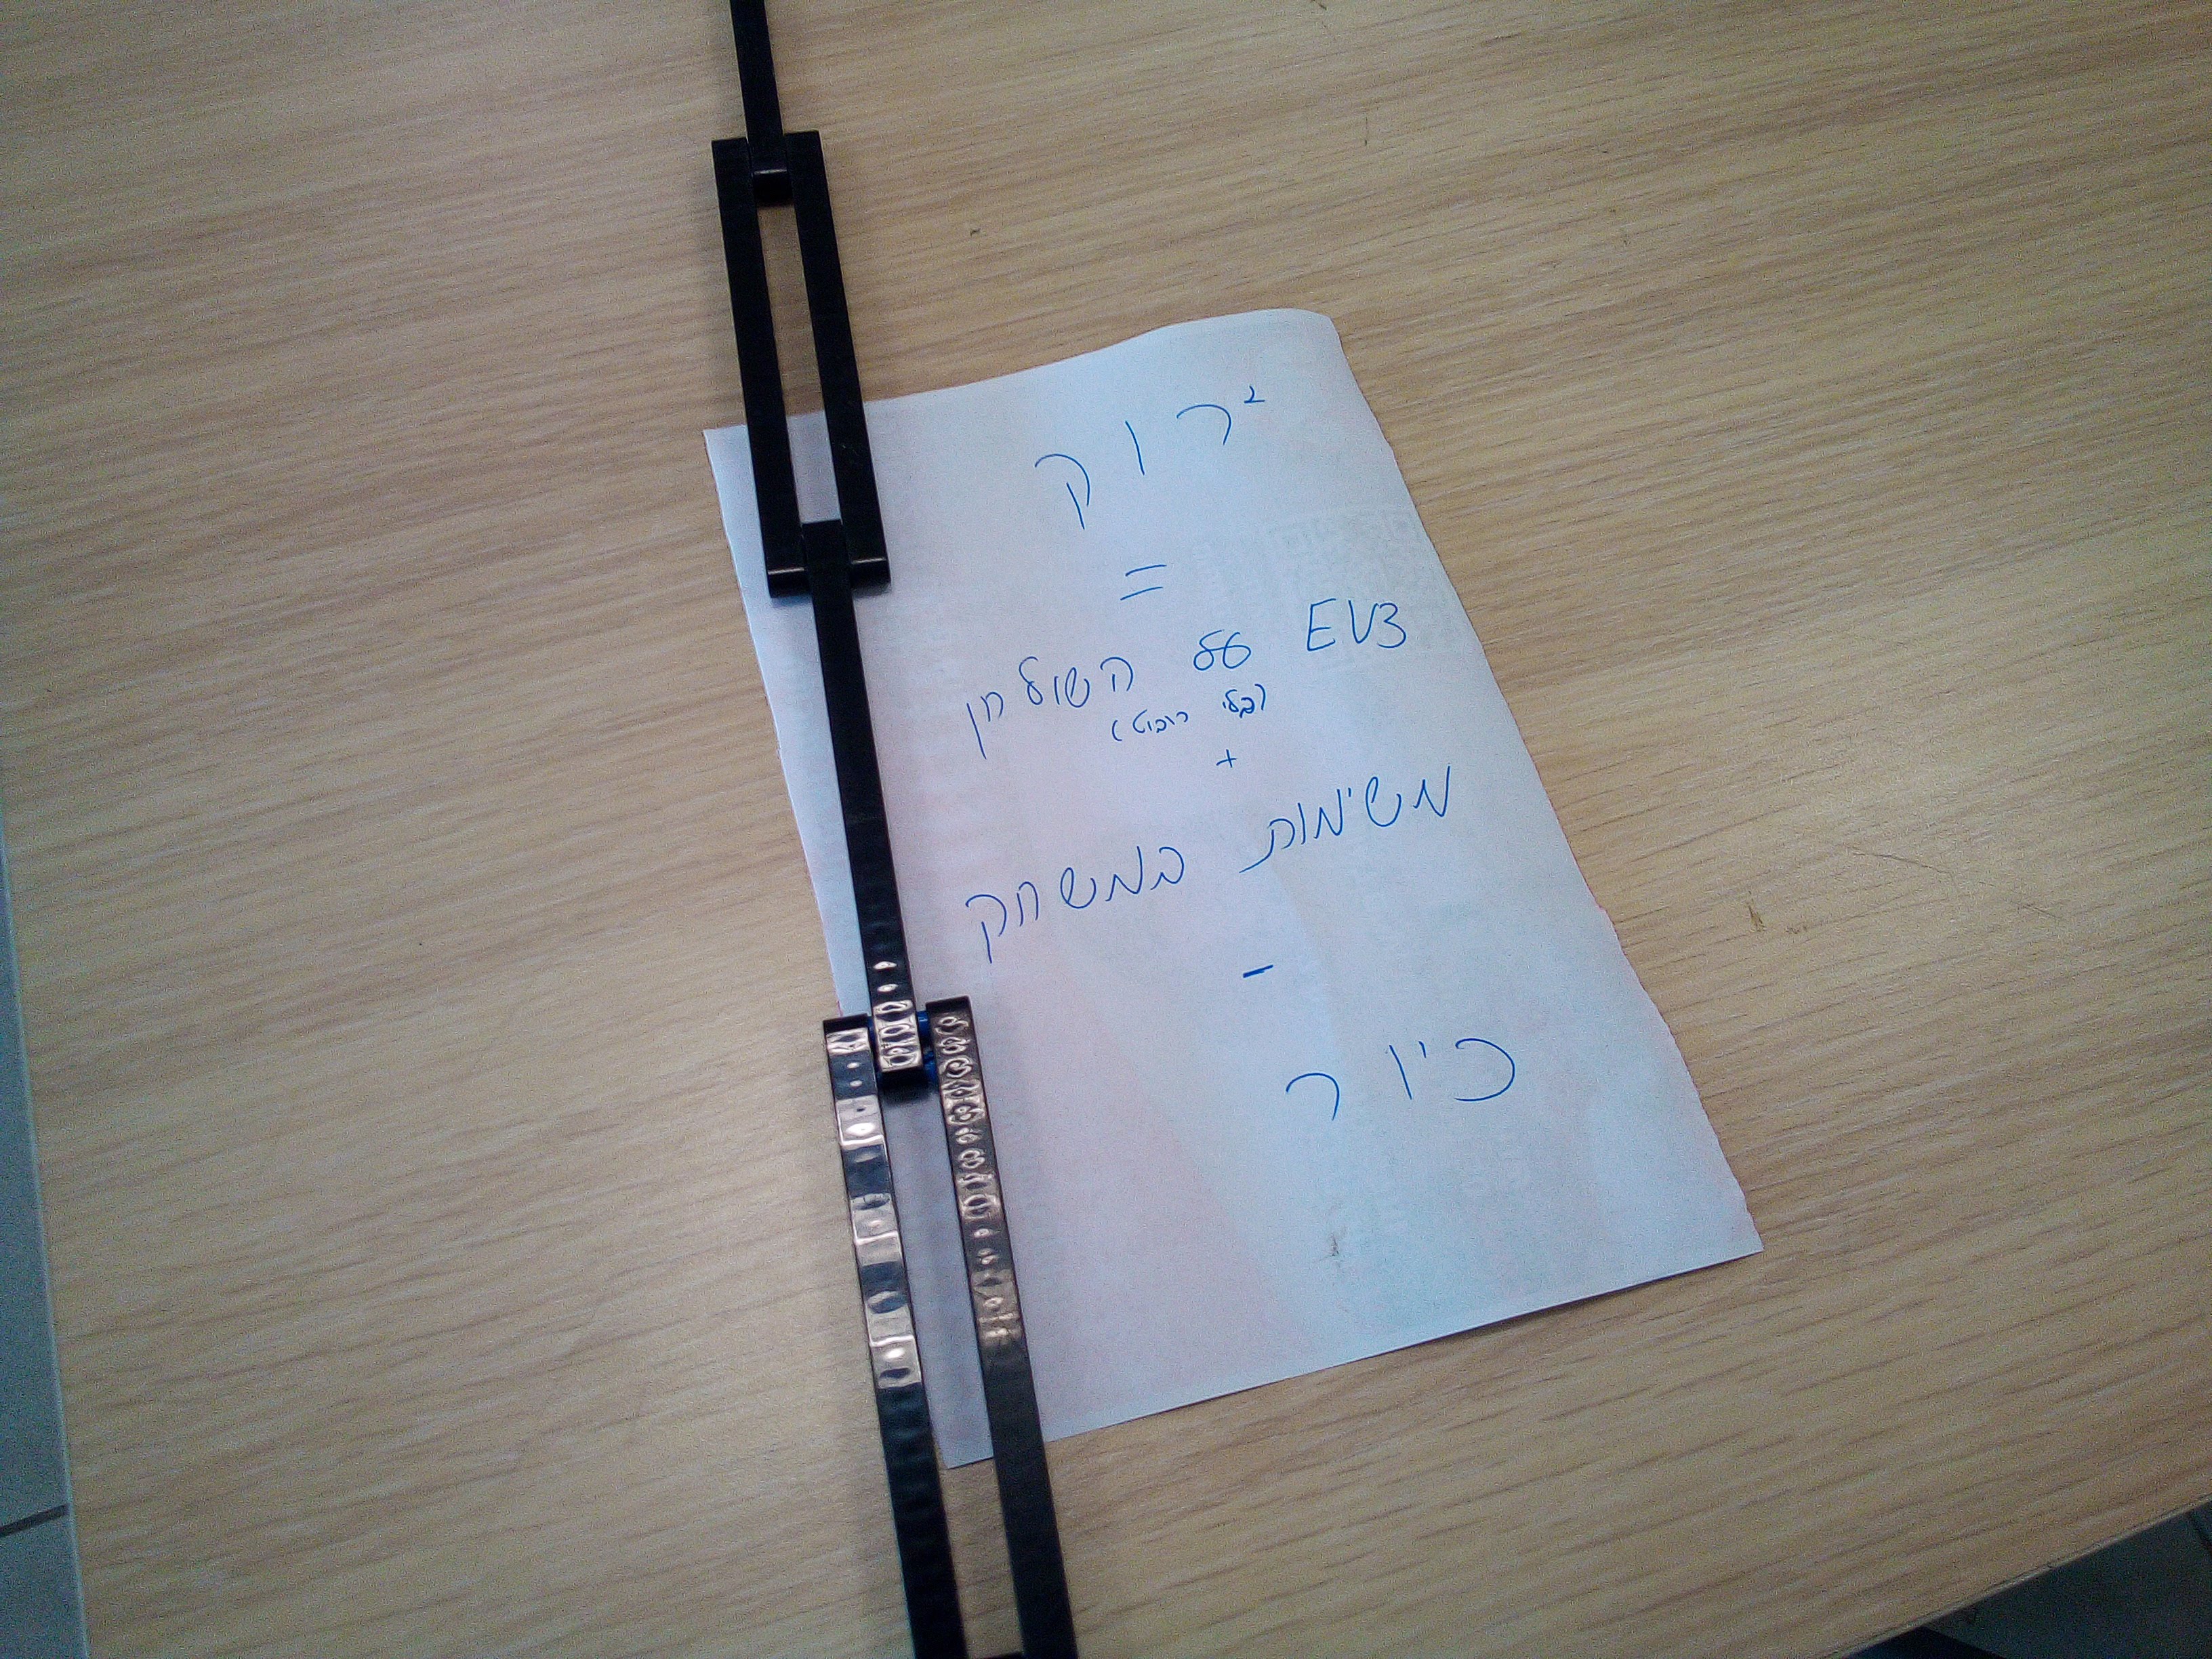 רוק²
=
EV3 על השולחן
(בלי רובוט)
+
משימות במשחק
-
כיור